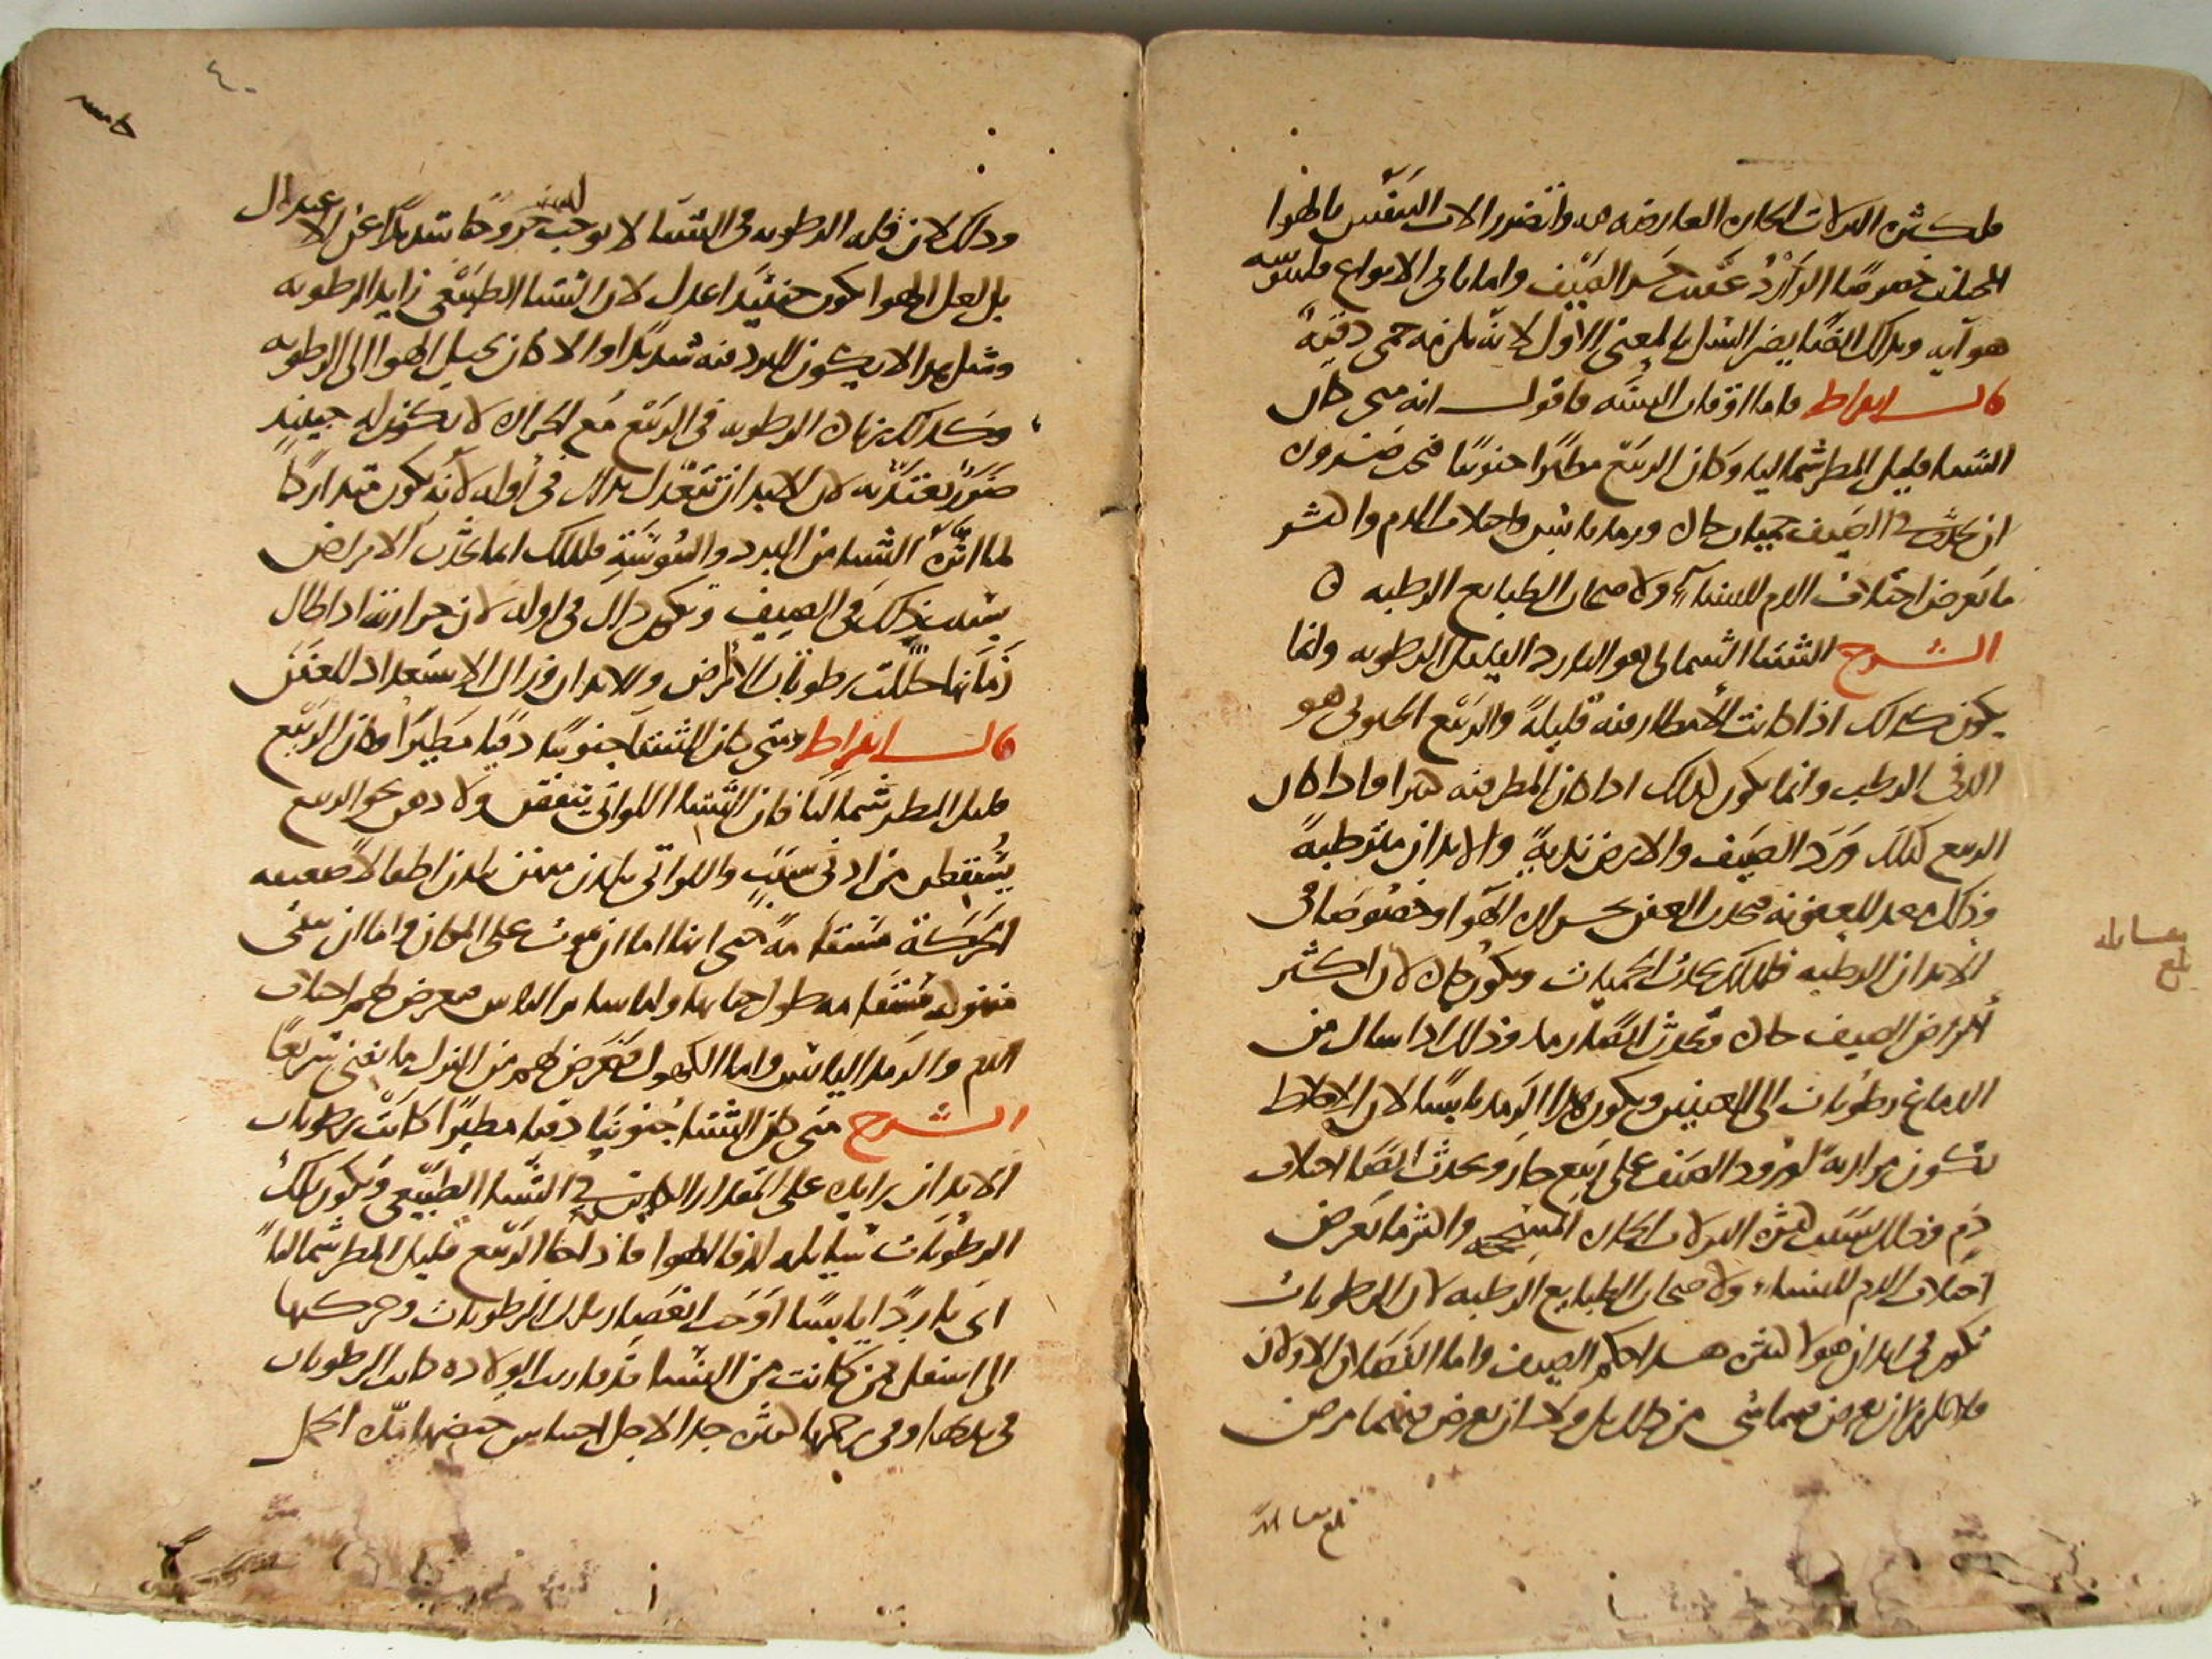 فلكثرة النزلات الحارة العارضة فيه واتضرر الات التنفس بالهوا
المختلف خصوصًا الوارد عقيب حر الصيف واما باقي الانواع فلسؤ
هوآيه وبذلك ايضًا يضر السل بالمعنى الاول لانه يلزمه حمى دقية
قال ابقراط فاما اوقات السنة فاقول انه متى كان
الشتا قليل المطر شماليا وكان الربيع مطيرًا جنوبيًا فيجب ضرورة
ان يحدث في الصيف حميات حادة ورمد يابس واختلاف الدم واكثر
ما يعرض اختلاف الدم للنساء ولاصحاب الطبايع الرطبة ه
الشرح الشتا الشمالي هو البارد القليل الرطوبة وانما
يكون كذلك اذا كانت الامطار فيه قليلةً والربيع الجنوبي هو
الدفي الرطب وانما يكون كذلك اذا كان المطر فيه كثيرا فاذا كان
الربيع كذلك ورد الصيف والارض نديةً والابدان مترطبةً
وذلك معد للعفونة فيحدث العفن بحرارة الهوا وخصوصًا في
الابدان الرطبة فلذلك يحدث الحميات ويكون حادة لان اكثر
امراض الصيف حادة ويحدث ايضًا رمد وذلك اذا سال من
الدماغ رطوبات الى العينين ويكون هذا الرمد يابسًا لان الاخلاط
تكون مرارية لورود الصيف على ربيع حار ويحدث ايضًا اختلاف
دم وذلك بسبب كثرة النزلات الحارة المسحجة واكثر ما يعرض
اختلاف الدم للنساء ولاصحاب الطبايع الرطبة لان الرطوبات
تكون في ابدان هولا اكثر هذا حكم الصيف واما الفصلان الاولان
فلا يلزم ان يعرض فيهما شي من ذلك بل ولا ان يعرض فيهما مرض
بلغ مقابلة
بلغ مقابلة
٤٠
وذلك لان قلة الرطوبة في الشتا لا يوجب خروجًا شديدًا عن الاعتدال
بل لعل الهوا يكون حينئذ اعدل لان الشتا الطبيعي زايد الرطوبة
ومثل هذا لا يكون البرد فيه شديدًا والا كان يحيل الهوا الى الرطوبة
وكذلك زيادة الرطوبة في الربيع مع الحرارة لا يكون له حينئذ
ضررًا يعتد به لان الابدان تتعدل بذلك في اوله لانه يكون متداركًا
لما اثره الشتا من البرد واليبوسة فلذلك انما يحدث الامراض
بسبب ذلك في الصيف ويكون ذلك في اوله لان حرارته اذا طال
زمانها حللت رطوبات الارض والابدان فزال الاستعداد للعفن
قال ابقراط ومتى كان الشتا جنوبيًا دفيًا مطيرًا وكان الربيع
قليل المطر شماليًا فان النسا اللواتي يتفق ولادهن نحو الربيع
يسقطن من ادنى سبب واللواتي يلدن منهن يلدن اطفالًا ضعيفة
الحركة مسقامةً حتى انها اما ان تموت على المكان واما ان تبقى
منهوكة مسقامة طول حياتها واما ساير الناس فيعرض لهم اختلاف
الدم والرمد اليابس واما الكهول فيعرض لهم من النزل ما يفني سريعًا
الشرح متى كان الشتا جنوبيًا دفيا مطيرًا كانت رطوبات
الابدان زايدة على المقدار الكاين في الشتا الطبيعي وتكون تلك
الرطوبات سيالة لدفا الهوا فاذا جا الربيع قليل المطر شماليًا
اي باردًا يابسًا اوجب انعصار تلك الرطوبات وحركتها
الى اسفل فمن كانت من النسا قد قاربت الولادة كانت الرطوبات
في بدنها وفي رحمها كثيرة جدا لاجل احتباس حيضها مدة الحمل